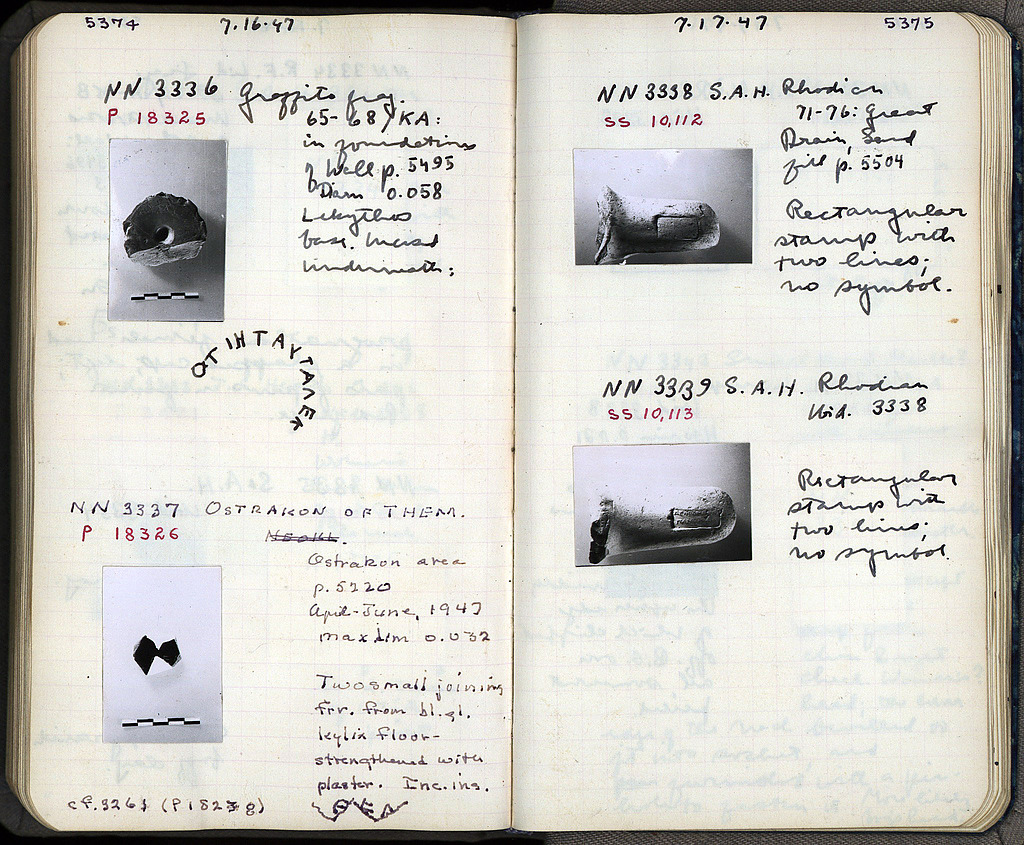 5374 7.16.47
NN 3336 Graffito frag.
P 18325 65-68/KA:
in foundations
of Wall p. 5495
Diam 0.058
Lekythos
base. Incised
underneath:
NN 3337 OSTRAKON OF THEM.
P 18326
Ostrakon area
p. 5220
April-June, 1947
max dim 0.032
Two small joining
frr. from bl. gl.
kylix floor-
strengthened with
plaster. Inc. ins.
ΘΕΛ
cf. 3261 (P 18238)
7.17.47 5375
NN 3338 S.A.H. Rhodian
SS 10,112 71-76: Great
Drain, Sand
fill p. 5504
Rectangular
stamp with
two lines;
no symbol.
NN 3339 S.A.H. Rhodian
SS 10,113 Ibid. 3338
Rectangular
stamp with
two lines;
no symbol.